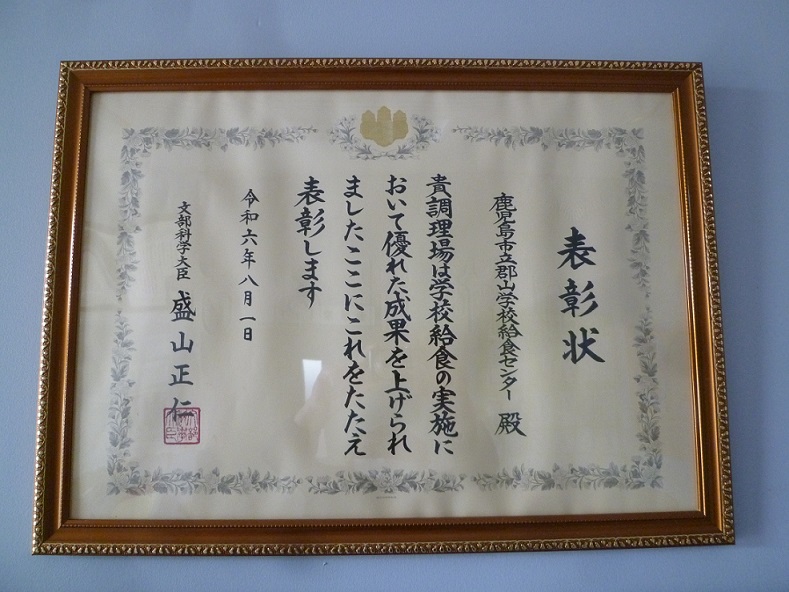 表彰状
鹿児島市立郡山学校給食センター 殿
貴調理場は学校給食の実施に
おいて優れた成果を上げられ
ましたここにこれをたたえ
表彰します
令和六年八月一日
文部科学大臣 盛山正仁